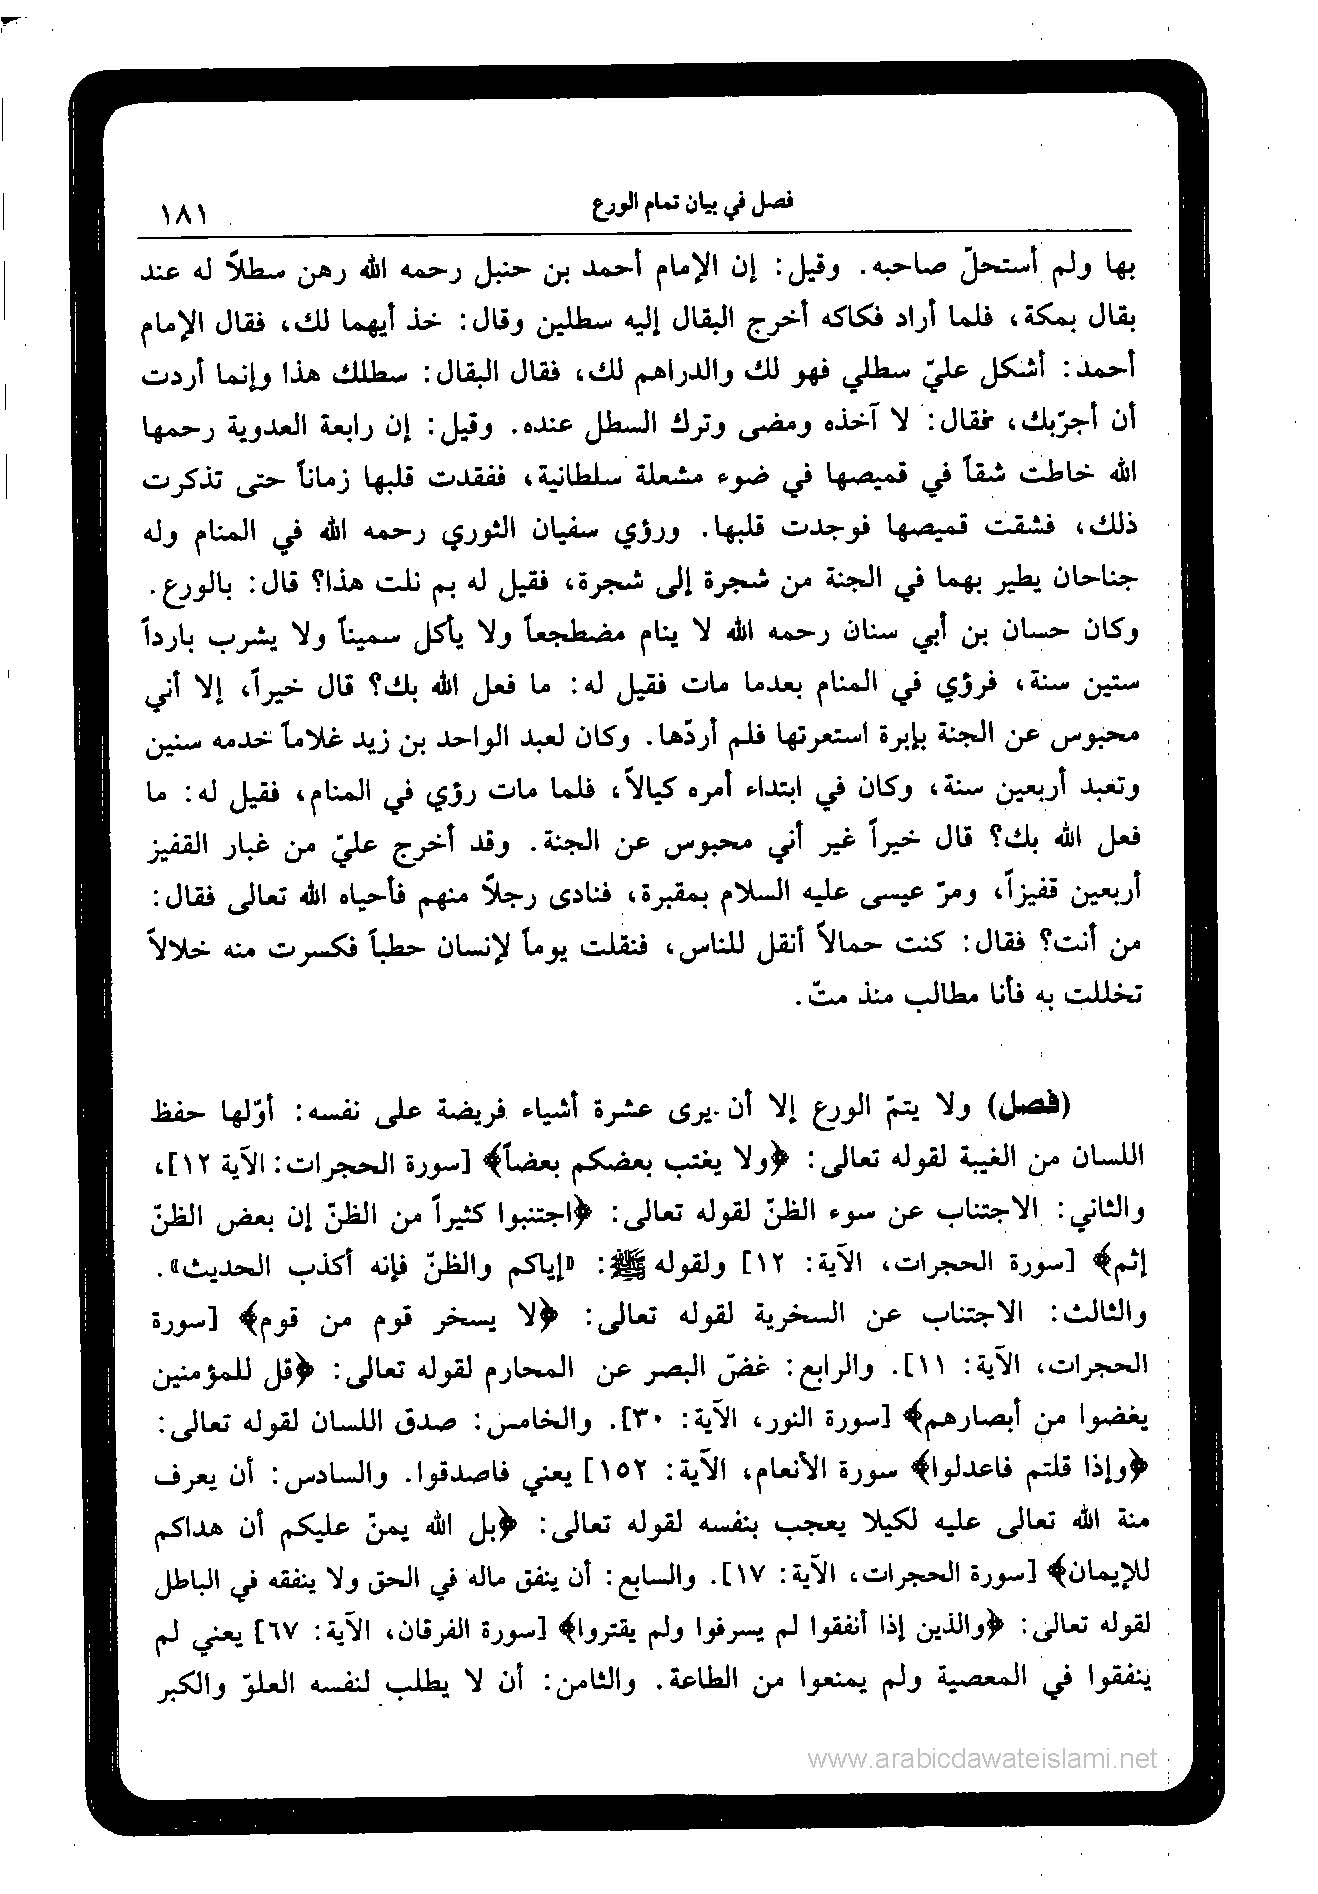 فصل في بيان تمام الورع ١٨١
بها ولم أستحلّ صاحبه. وقيل: إن الإمام أحمد بن حنبل رحمه الله رهن سطلاً له عند
بقال بمكة، فلما أراد فكاكه أخرج البقال إليه سطلين وقال: خذ أيهما لك، فقال الإمام
أحمد: أشكل عليّ سطلي فهو لك والدراهم لك، فقال البقال: سطلك هذا وإنما أردت
أن أجرّبك، فقال: لا آخذه ومضى وترك السطل عنده. وقيل: إن رابعة العدوية رحمها
الله خاطت شقاً في قميصها في ضوء مشعلة سلطانية، ففقدت قلبها زماناً حتى تذكرت
ذلك، فشقت قميصها فوجدت قلبها. ورؤي سفيان الثوري رحمه الله في المنام وله
جناحان يطير بهما في الجنة من شجرة إلى شجرة، فقيل له بم نلت هذا؟ قال: بالورع.
وكان حسان بن أبي سنان رحمه الله لا ينام مضطجعاً ولا يأكل سميناً ولا يشرب بارداً
ستين سنة، فرؤي في المنام بعدما مات فقيل له: ما فعل الله بك؟ قال خيراً، إلا أني
محبوس عن الجنة بإبرة استعرتها فلم أردّها. وكان لعبد الواحد بن زيد غلاماً خدمه سنين
وتعبد أربعين سنة، وكان في ابتداء أمره كيالاً، فلما مات رؤي في المنام، فقيل له: ما
فعل الله بك؟ قال خيراً غير أني محبوس عن الجنة. وقد أخرج عليّ من غبار القفيز
أربعين قفيزاً، ومرّ عيسى عليه السلام بمقبرة، فنادى رجلاً منهم فأحياه الله تعالى فقال:
من أنت؟ فقال: كنت حمالاً أنقل للناس، فنقلت يوماً لإنسان حطباً فكسرت منه خلالاً
تخللت به فأنا مطالب منذ متّ.
(فصل) ولا يتمّ الورع إلا أن يرى عشرة أشياء فريضة على نفسه: أوّلها حفظ
اللسان من الغيبة لقوله تعالى: ﴿ولا يغتب بعضكم بعضاً﴾ [سورة الحجرات: الآية ١٢]،
والثاني: الاجتناب عن سوء الظنّ لقوله تعالى: ﴿اجتنبوا كثيراً من الظنّ إن بعض الظنّ
إثم﴾ [سورة الحجرات، الآية: ١٢] ولقوله ﷺ: «إياكم والظنّ فإنه أكذب الحديث».
والثالث: الاجتناب عن السخرية لقوله تعالى: ﴿لا يسخر قوم من قوم﴾ [سورة
الحجرات، الآية: ١١]. والرابع: غضّ البصر عن المحارم لقوله تعالى: ﴿قل للمؤمنين
يغضوا من أبصارهم﴾ [سورة النور، الآية: ٣٠]. والخامس: صدق اللسان لقوله تعالى:
﴿وإذا قلتم فاعدلوا﴾ سورة الأنعام، الآية: ١٥٢] يعني فاصدقوا. والسادس: أن يعرف
منة الله تعالى عليه لكيلا يعجب بنفسه لقوله تعالى: ﴿بل الله يمنّ عليكم أن هداكم
للإيمان﴾ [سورة الحجرات، الآية: ١٧]. والسابع: أن ينفق ماله في الحق ولا ينفقه في الباطل
لقوله تعالى: ﴿والذين إذا أنفقوا لم يسرفوا ولم يقتروا﴾ [سورة الفرقان، الآية: ٦٧] يعني لم
ينفقوا في المعصية ولم يمنعوا من الطاعة. والثامن: أن لا يطلب لنفسه العلوّ والكبر
www.arabicdawateislami.net